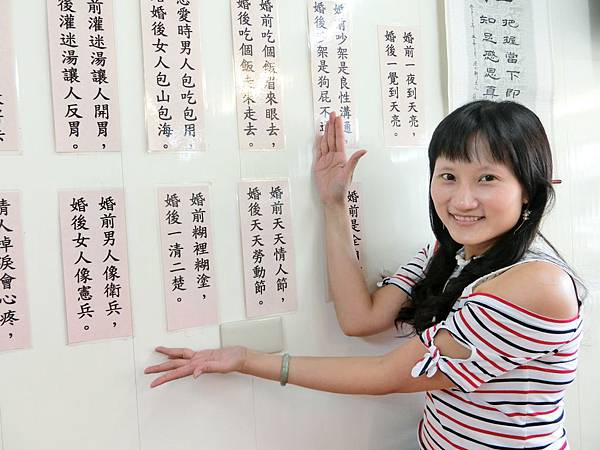 把握當下即
知足感恩真
婚前一夜到天亮，
婚後一覺到天亮。
婚前吵架是良性溝通，
婚後吵架是狗屁不
婚前吃個飯眉來眼去，
婚後吃個飯走來走去。
愛時男人包吃包用，
婚後女人包山包海。
前灌迷湯讓人開胃，
後灌迷湯讓人反胃。
婚前是全
婚前天天情人節，
婚後天天勞動節。
婚前糊裡糊塗，
婚後一清二楚。
婚前男人像衛兵，
婚後女人像憲兵。
情人掉淚會心疼，